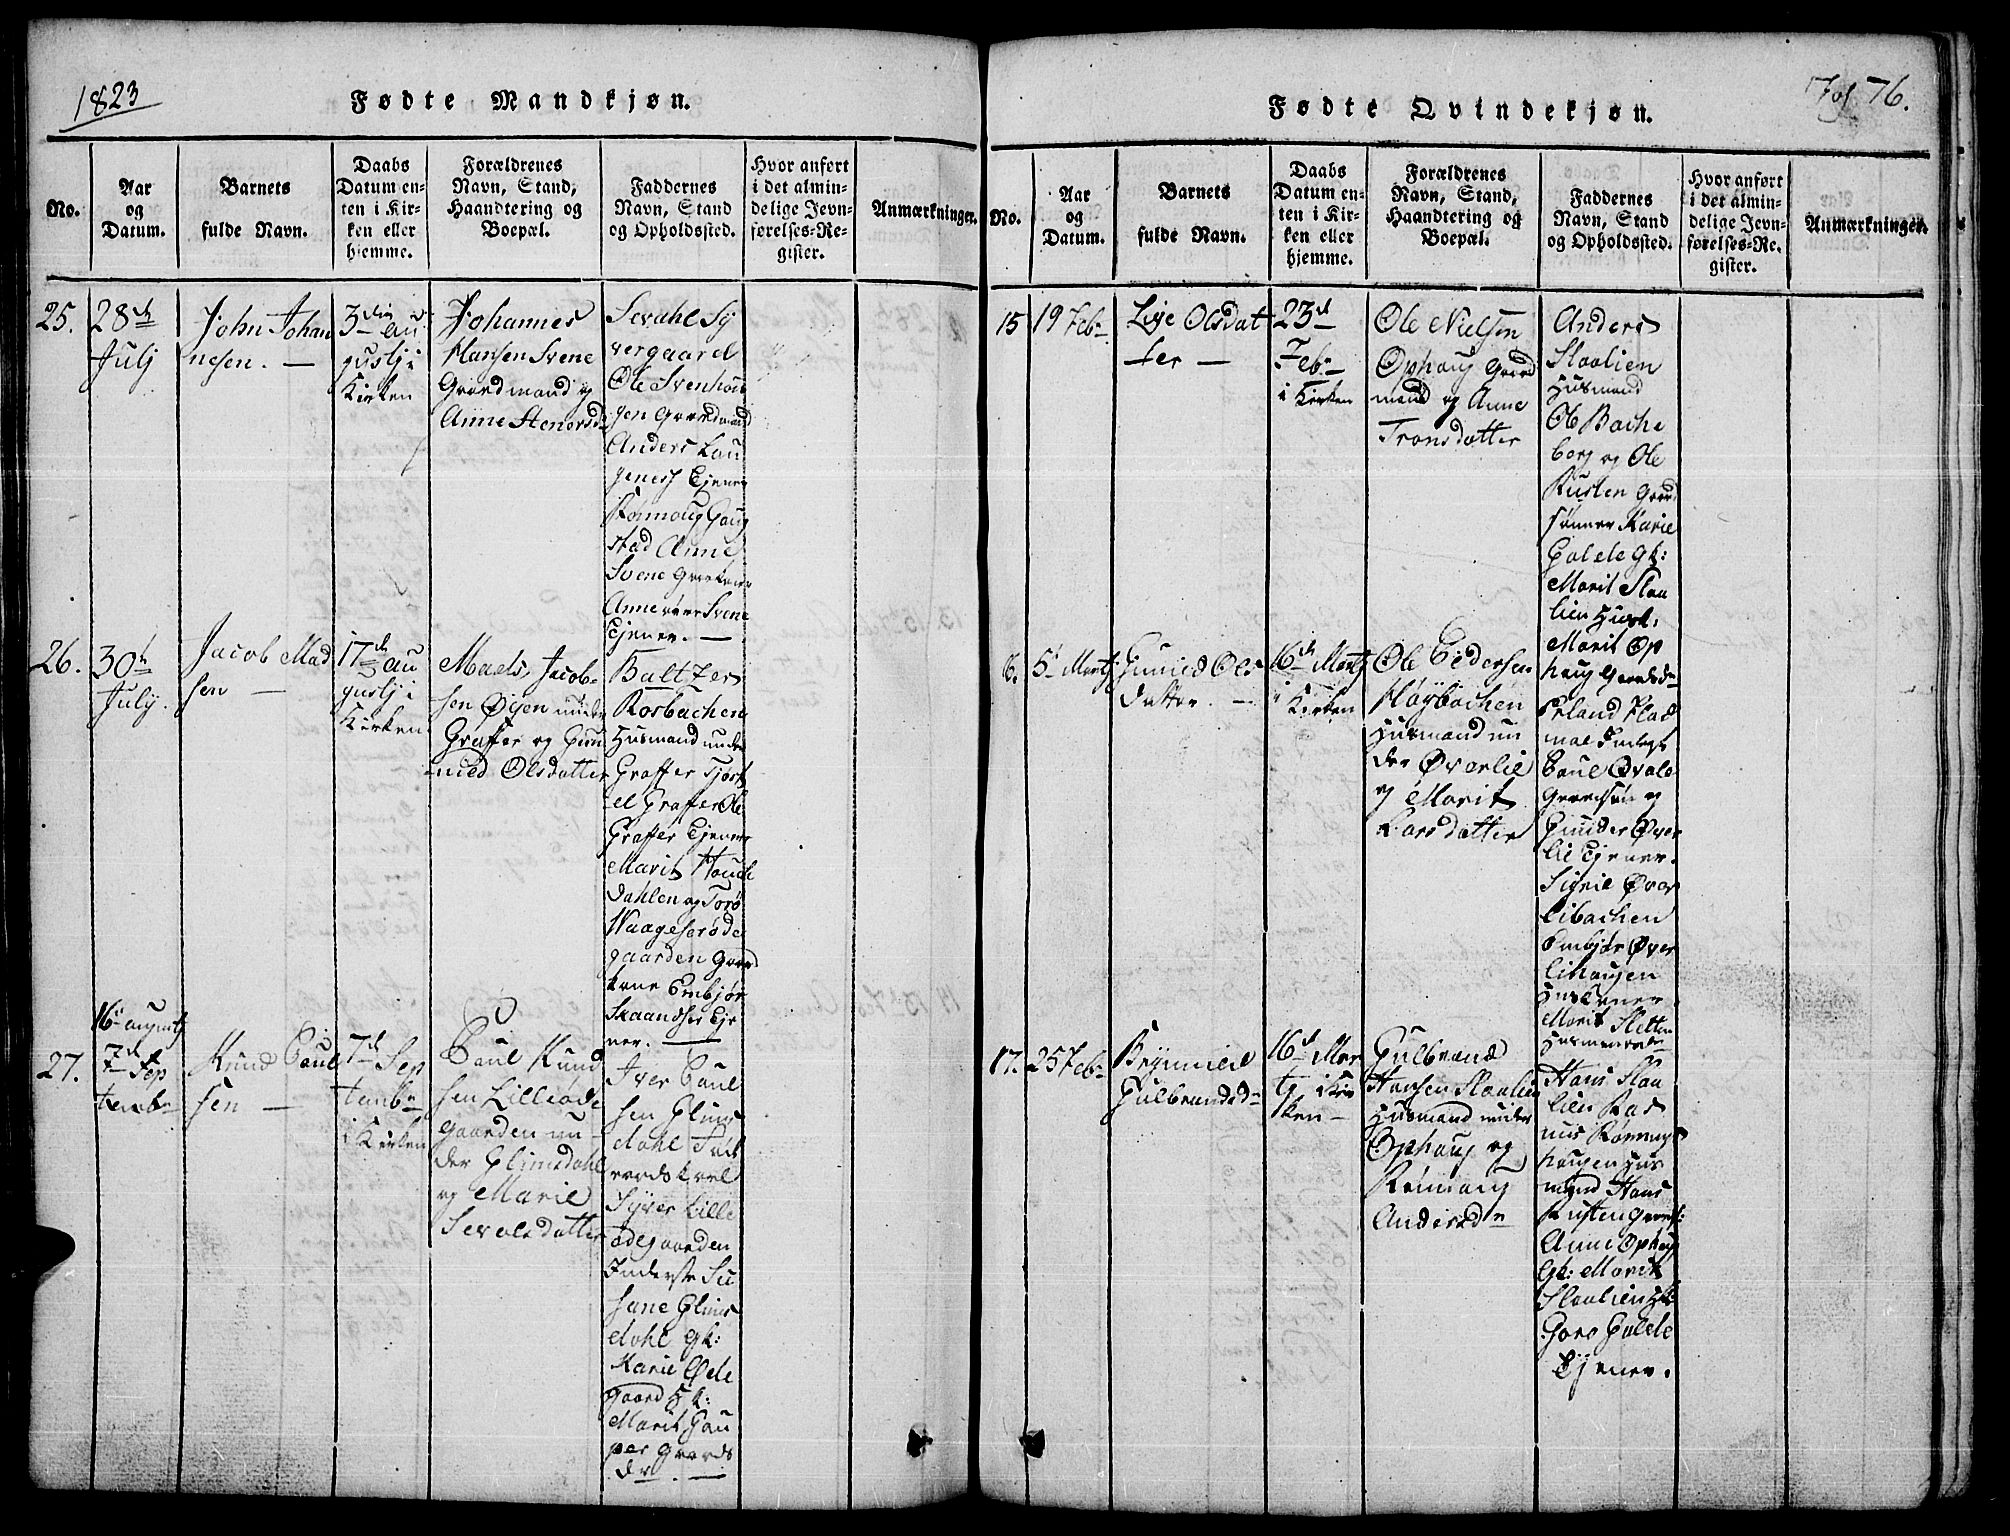 1823
Fødte Mandkjøn.
No.
Aar
og
Datum.
Barnets
fulde Navn.
Daabs
Datum en-
ten i Kir-
ken eller
hjemme.
Forældrenes
Navn, Stand,
Haandtering og
Boepæl.
Faddernes
Navn, Stand
og Opholdssted.
Hvor anført
i det almin-
delige Jevn-
førelses-Re-
gister.
Anmærkninger.
25.
28de
Julj
John Johan
nesen. —
3die au
gustj i
Kirken
Johannes
Hansen Svene
Gaardmand og
Anne Stenersd
Sevahl Sy
vergaard
Ole Svenhou
gen Gaardmand
Anders Lau
Ejener
Gaug
stad Anne
Svene
Anne Svene
Ejener. —
26.
30te
Julj.
Jacob Mad
sen —
17de au
gustj i
Kirken
Mads Jacob-
sen Øyen under
Graffer og Gun
nild Olsdatter
Baltzer
Rosbachen
Husmand under
Graffer Tjøst
el Graffer Ole
Graffer Ejener
Marit
Dahlen og Torø
Waageserøde
gaarden Gaard
kone Embjør
Skaandser Eje
ner. —
27.
16de augustj
7de Sep
tembr
Knud Poul
sen —
7de Sep
tembr
i Kirken
Poul Knud
sen Lilleøde
gaarden un
der Glimsdahl
og Marie
Sevalsdatter
Iver Poul
sen Glims
dahl
Syver Lille
ødegaarden
Inderste Su
sane Glims
dahl Gk:
Marie Øde
gaard Hk:
Marit Gau
per Gaards
dr. —
Fødte Qvindekjøn.
Fol 76.
No.
Aar
og
Datum.
Barnets
fulde Navn.
Daabs
Datum en-
ten i Kir-
ken eller
hjemme.
Forældrenes
Navn, Stand,
Haandtering og
Boepæl.
Faddernes
Navn, Stand
og Opholdssted.
Hvor anført
i det almin-
delige Jevn-
førelses-Re-
gister.
Anmærkninger.
15
19 Febr
Lise Olsdat
ter —
23d
Febr
i Kirken
Ole Nielsen
Ophaug Gaard
mand og Anne
Tronsdatter
Anders
Slaalien
Husmand
Ole Bache
berg og Ole
Rusten Gaard
sønner Marie
Galde Gk:
Marit Slaa
lien Husk:
Marit Op
haug Gaardsdr
6.
5te Martj
Gunild Ols
datter. —
16de Martj
i Kirken
Ole Pedersen
Høybachen
Husmand un
der Øverlie
og Marit
Larsdatter
Erland Flad
moe Inderst
Poul Øvrlie
Gaardsøn og
Øver
lie Ejener.
Sigrie Øver
libachen
Embjør Øver
lihaugen
Huskoner
Marit Sletten
17.
25 Febr
Brynnild
Gulbrandsdr
16de Mar
tj i Kir
ken —
Gulbrand
Hansen Slaalien
Husmand under
Ophaug og
Rønnaug
Andersdr
Hans Slaa
lien Ras
mus Rønnings
haugen Hus
mand Hans
Rusten
Anne Ophaug
Gk: Marit
Slaalien Hk:
Goro Galde
Ejener.